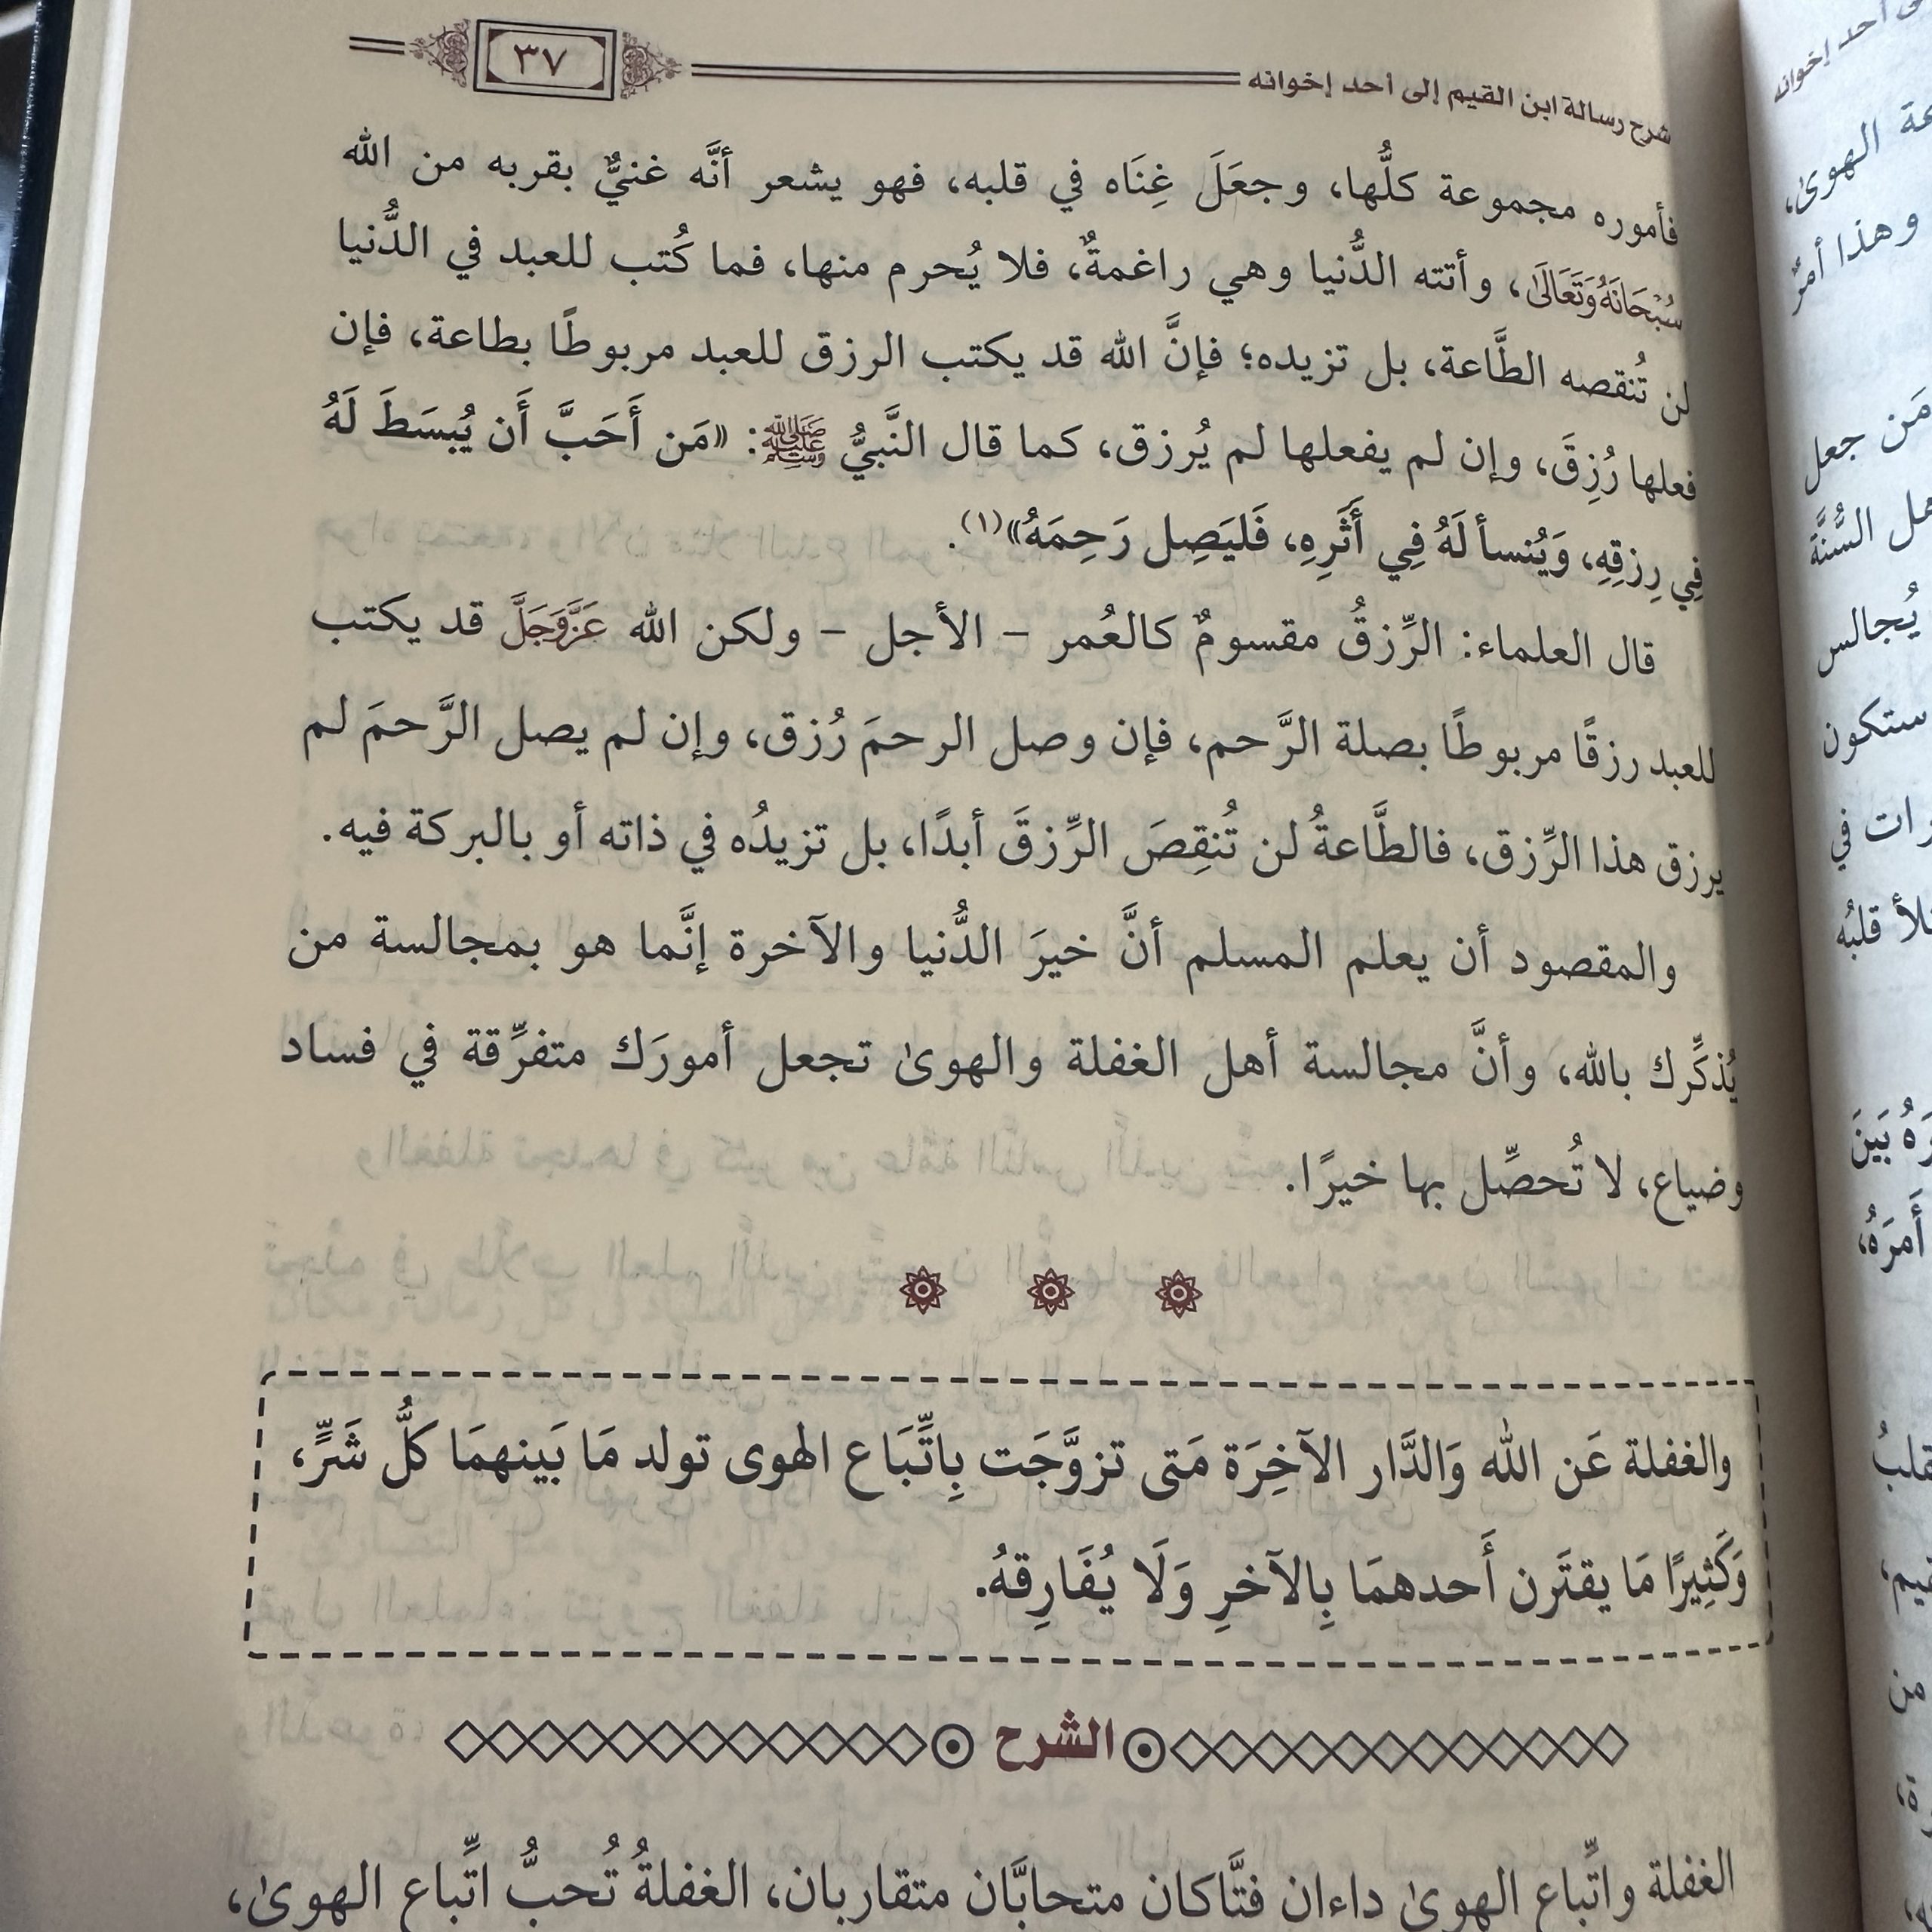 شرح رسالة ابن القيم إلى أحد إخوانه
٣٧
فأموره مجموعة كلُّها، وجعَلَ غِنَاه في قلبه، فهو يشعر أنَّه غنيٌّ بقربه من الله
سُبْحَانَهُ وَتَعَالَىٰ، وأتته الدُّنيا وهي راغمةٌ، فلا يُحرم منها، فما كُتب للعبد في الدُّنيا
لن تُنقصه الطَّاعة، بل تزيده؛ فإنَّ الله قد يكتب الرزق للعبد مربوطًا بطاعة، فإن
فعلها رُزِقَ، وإن لم يفعلها لم يُرزق، كما قال النَّبيُّ ﷺ: «مَن أَحَبَّ أَن يُبسَطَ لَهُ
فِي رِزقِهِ، وَيُنسأ لَهُ فِي أَثَرِهِ، فَليَصِل رَحِمَهُ»(١).
قال العلماء: الرِّزقُ مقسومٌ كالعُمر – الأجل – ولكن الله عَزَّوَجَلَّ قد يكتب
للعبد رزقًا مربوطًا بصلة الرَّحم، فإن وصل الرحمَ رُزق، وإن لم يصل الرَّحمَ لم
يرزق هذا الرِّزق، فالطَّاعةُ لن تُنقِصَ الرِّزقَ أبدًا، بل تزيدُه في ذاته أو بالبركة فيه.
والمقصود أن يعلم المسلم أنَّ خيرَ الدُّنيا والآخرة إنَّما هو بمجالسة من
يُذكِّرك بالله، وأنَّ مجالسة أهل الغفلة والهوىٰ تجعل أمورَك متفرِّقة في فساد
وضياع، لا تُحصِّل بها خيرًا.
والغفلة عَن الله وَالدَّار الآخِرَة مَتى تزوَّجَت بِاتِّبَاع الهوى تولد مَا بَينهمَا كلُّ شَرٍّ،
وَكَثِيرًا مَا يقتَرن أَحدهمَا بِالآخرِ وَلَا يُفَارِقهُ.
الشرح
الغفلة واتِّباع الهوىٰ داءان فتَّاكان متحابَّان متقاربان، الغفلةُ تُحبُّ اتِّباع الهوىٰ،